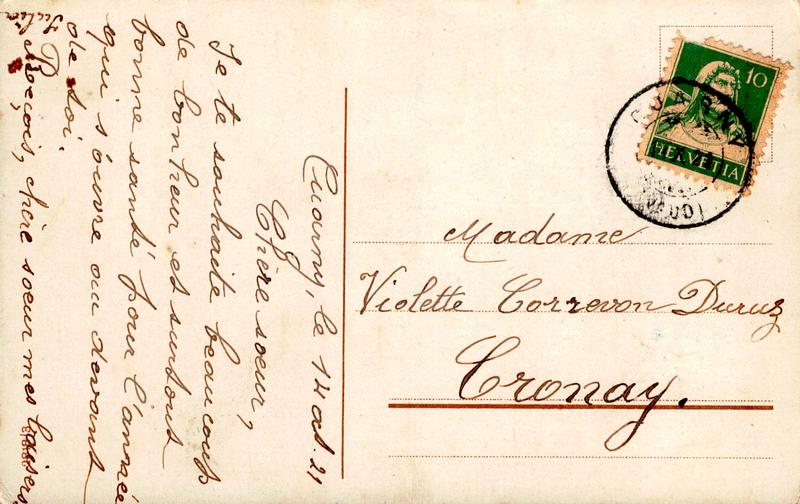 Cuarny, le 14 oct. 21
Chère soeur,
Je te souhaite beaucoup
de bonheur et surtout
bonne santé pour l'année
qui s'ouvre au devant
de toi.
Reçois, chère soeur mes baisers
10
HELVETIA
CUARNY
(VAUD)
Madame
Violette Correvon Duruz
Cronay.